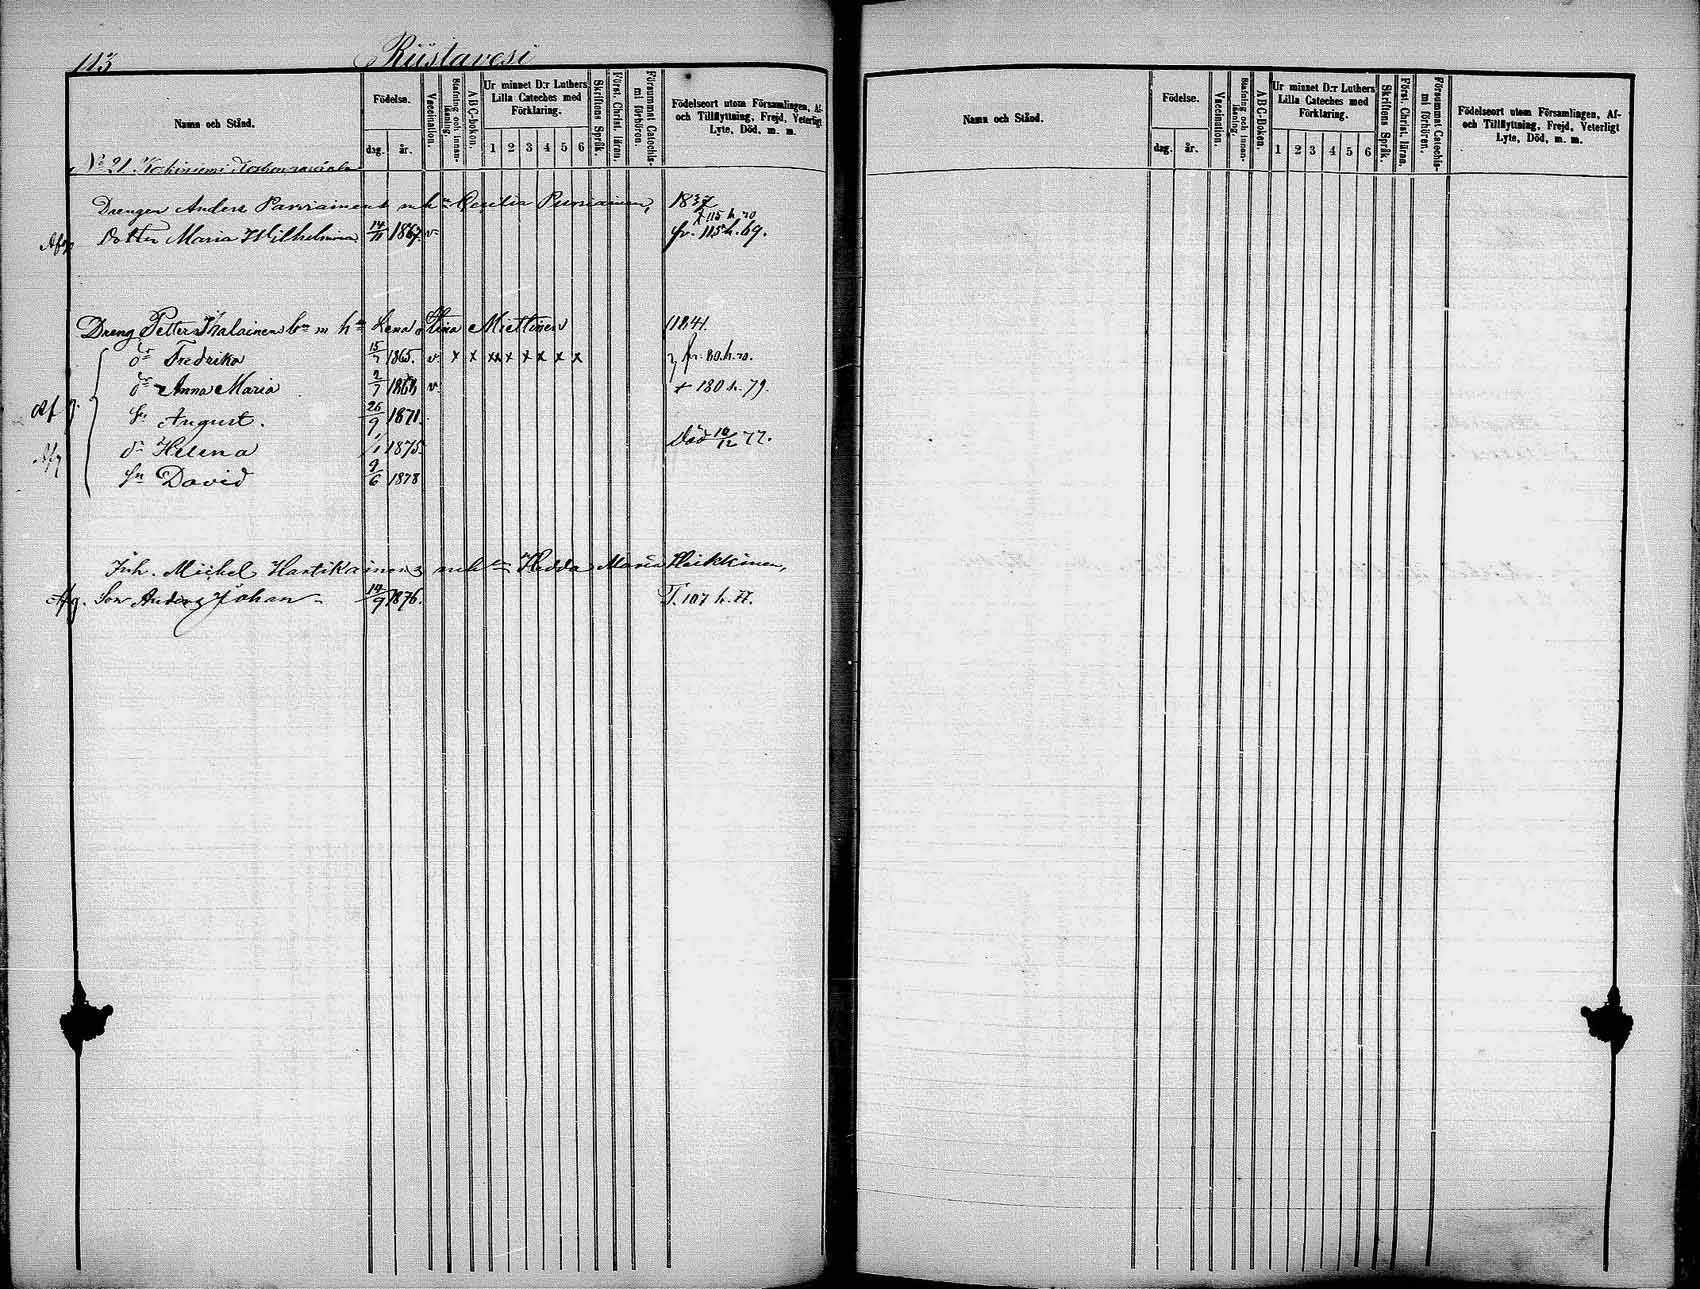 113 Riistavesi
Namn och Stånd.
Födelse.
dag. år.
Vaccination.
Stafning och innanläsning.
ABC-boken.
Ur minnet D:r Luthers Lilla Cateches med Förklaring.
1 2 3 4 5 6
Skriftens Språk.
Först. Christ. läran.
Försummat Catechismi förhören.
Födelseort utom Församlingen, Af- och Tillflyttning, Frejd, Veterligt Lyte, Död, m. m.
Namn och Stånd.
Födelse.
dag. år.
Vaccination.
Stafning och innanläsning.
ABC-Boken.
Ur minnet D:r Luthers Lilla Cateches med Förklaring.
1 2 3 4 5 6
Skriftens Språk.
Först. Christ. läran.
Försummat Catechismi förhören.
Födelseort utom Församlingen, Af- och Tillflyttning, Frejd, Veterligt Lyte, Död, m. m.
No 21 Koskiniemi
Drengen Anders m h Cecilia 1837
115 h. 70
Afg Dotter Maria Wilhelmina 14/11 1867 v. fr. 115 h. 69.
Dreng Petter m h Lena Stina Miettinen 1841.
dr Fredrika 15/7 1865. v. x x xx x x x x x fr. 80. h. 70.
dr Anna Maria 2/7 1868 v. + 180 h. 79.
Afg. sn August. 26/9 1871.
Afg dr Helena 1/1 1875. Död 10/12 77.
sn David 9/6 1878
Inh. Michel Hartikainen m h Hedda Maria Heikkinen,
Afg. Son Anders Johan 14/9 1876. T. 107 h. 77.